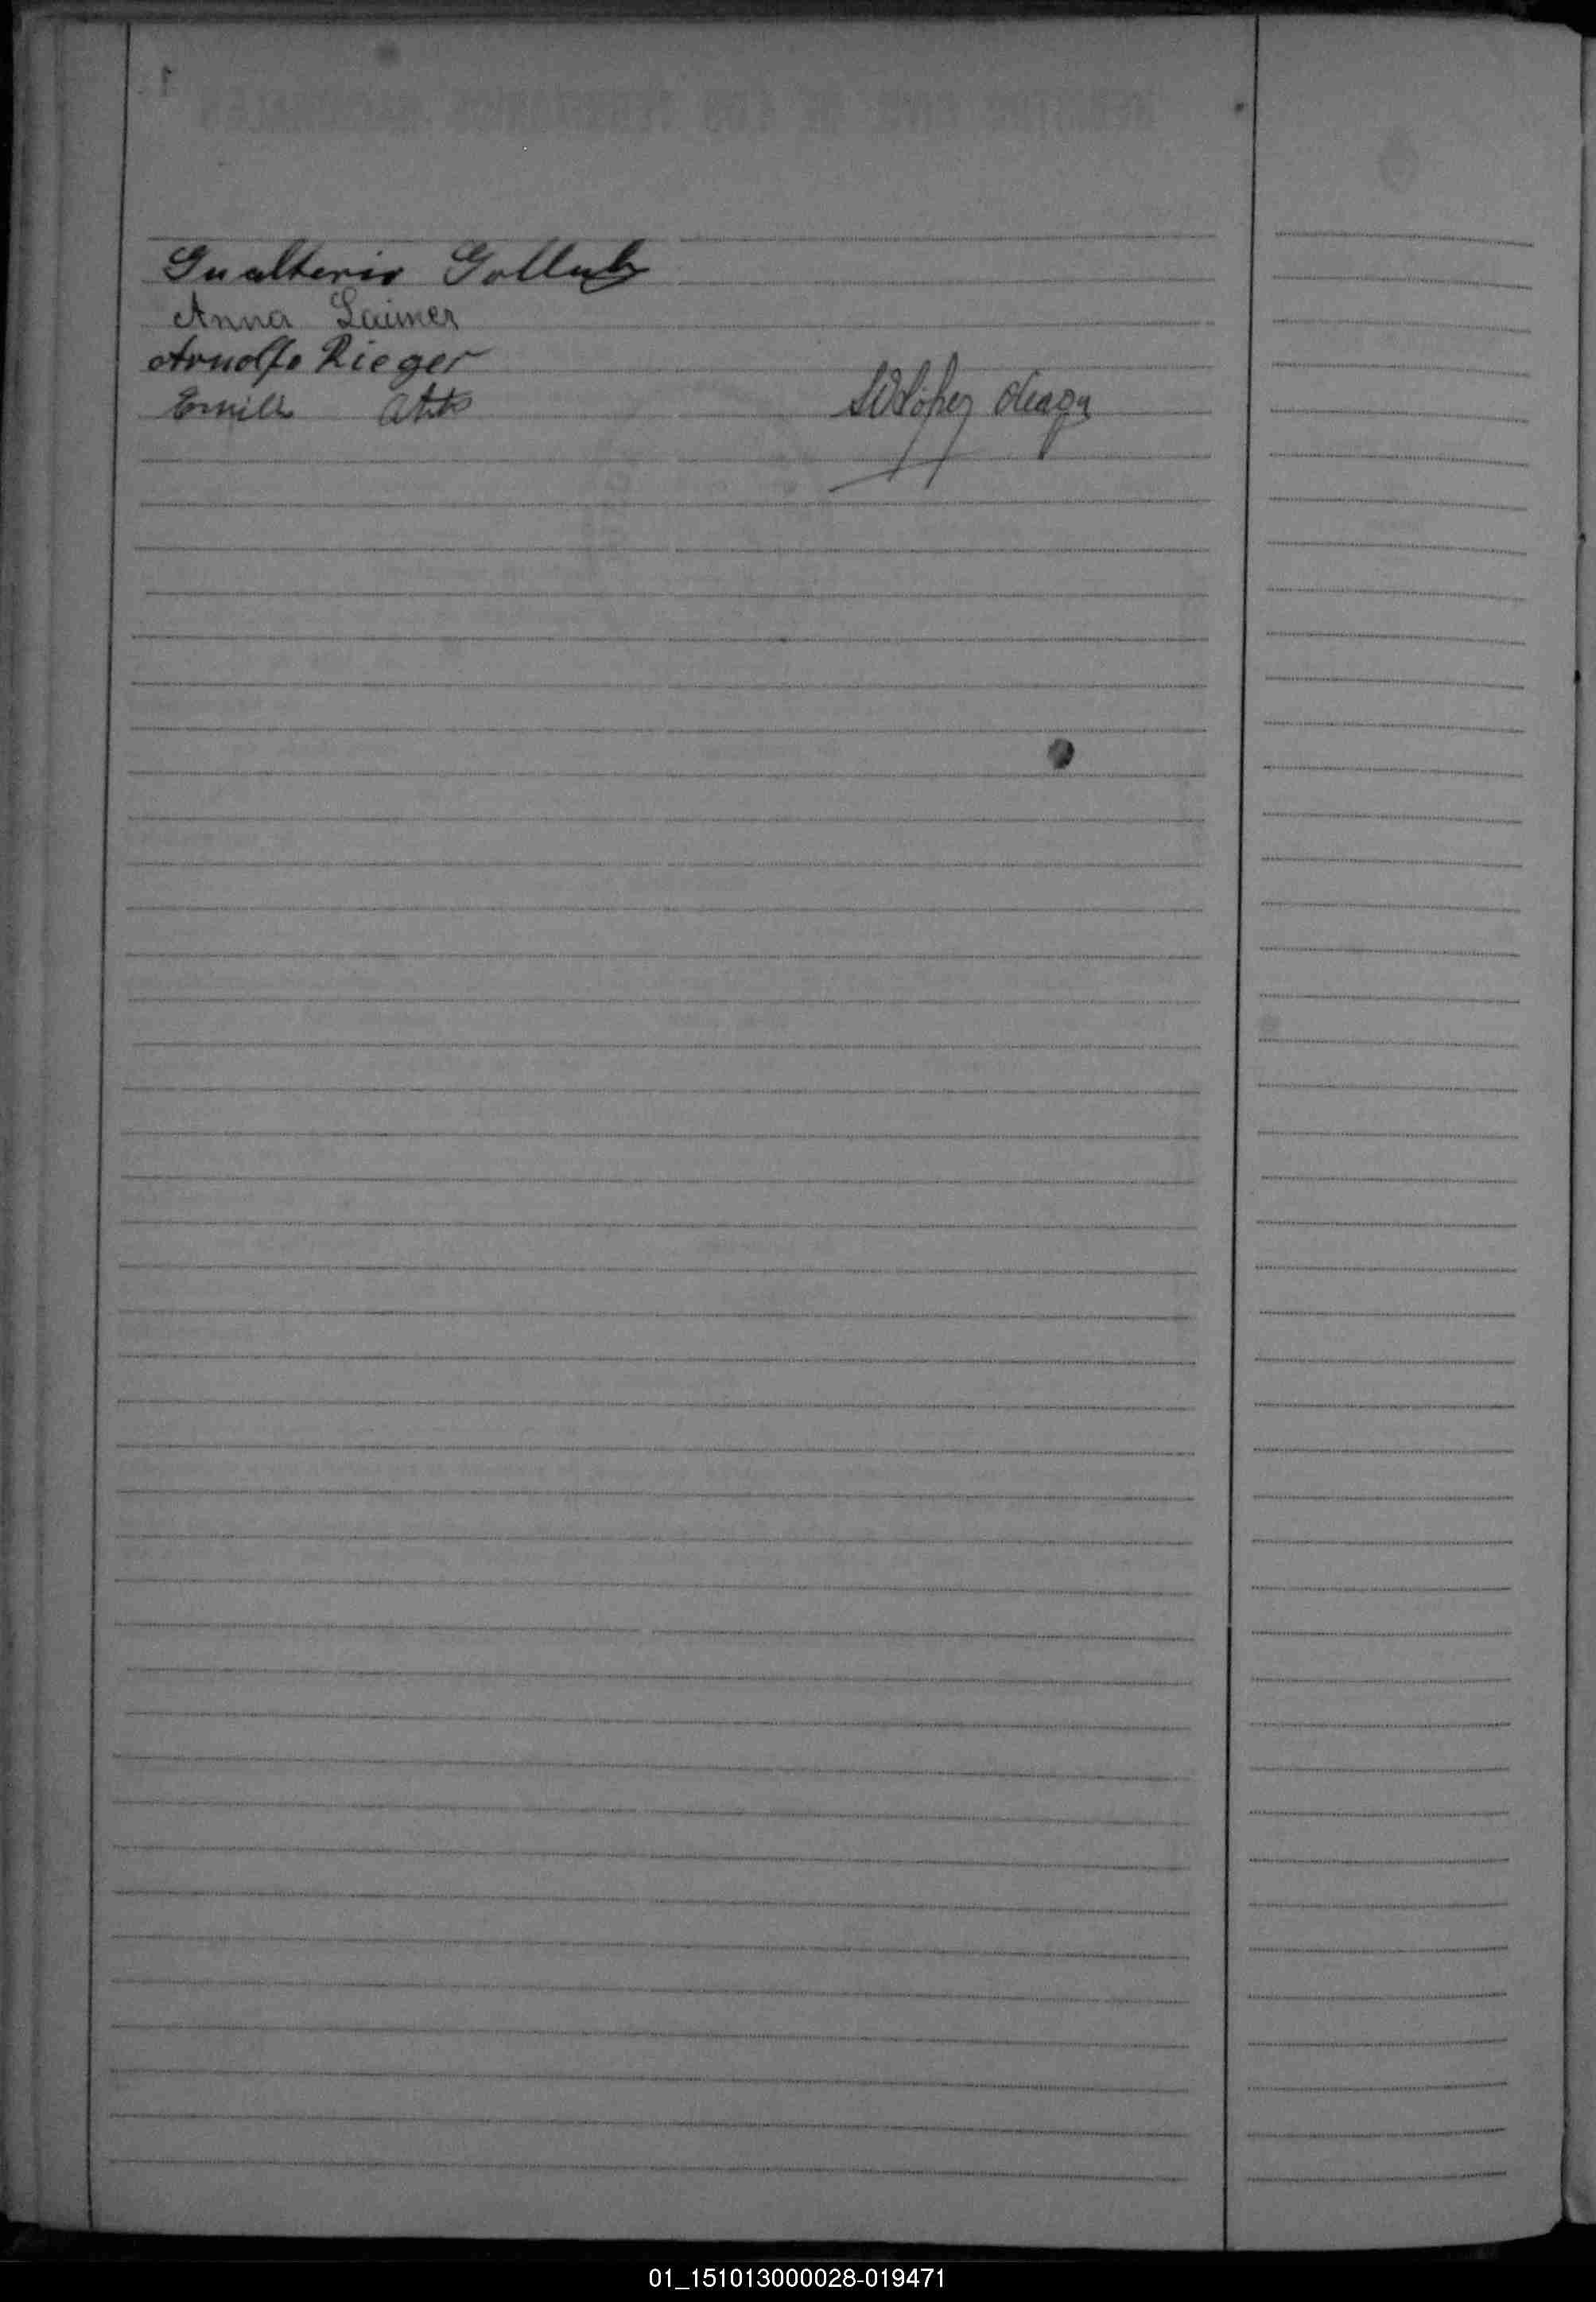 Gualterio Gollub
Anna Laimer
Arnolfo Rieger
Emilio
López
01_151013000028-019471